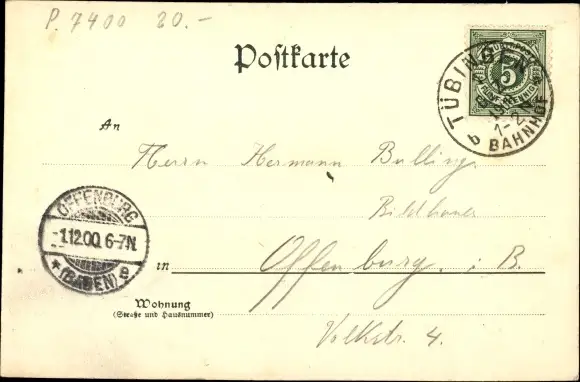 P. 7400 20.-
Postkarte
5
FÜNF PFENNIG
TÜBINGEN
1-2N
b BAHNHOF
An
Herrn Hermann Bulling
Bildhauer
OFFENBURG
-1.12.00. 6-7N.
*(BADEN) e
in Offenburg. i. B.
Wohnung
(Straße und Hausnummer)
Volkstr. 4.